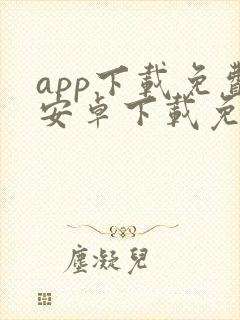 app下載免費
安卓下載免
塵凝兒